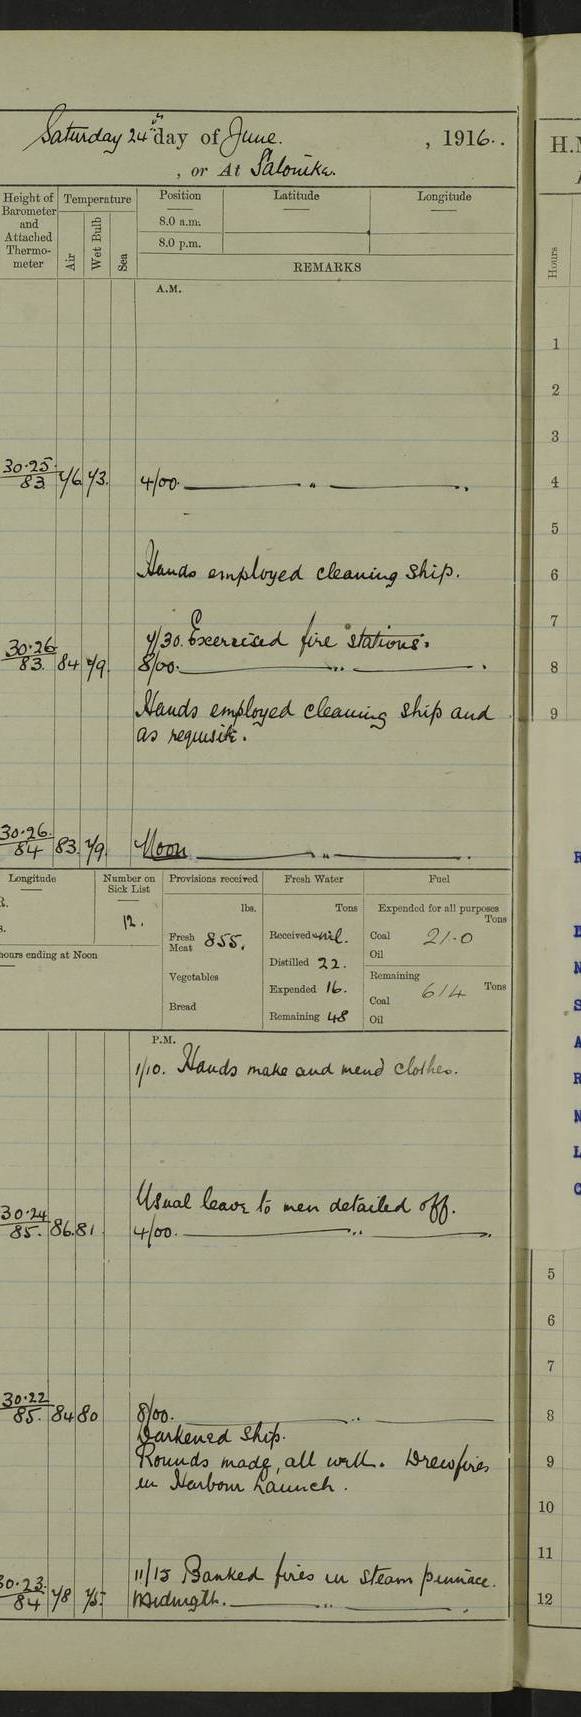 Saturday 24th day of June. , 1916..
, or At Salonika.
H.M
Height of Barometer and Attached Thermo-meter
Temperature
Air
Wet Bulb
Sea
Position
Latitude
Longitude
8.0 a.m.
8.0 p.m.
REMARKS
Hours
A.M.
1
2
3
30.25. 76. 73. 4/00. — " — 4
83.
5
Hands employed cleaning ship. 6
7
7/30. Exercised fire stations.
30.26 84 79. 8/00. — " — . 8
83.
Hands employed cleaning ship and 9
as requisite.
30.26. 83. 79. Noon — " — .
84
Longitude
Number on Sick List
Provisions received
Fresh Water
Fuel
lbs.
Tons
Expended for all purposes
Tons
12.
Fresh Meat 855.
Received nil.
Coal 21.0
Oil
hours ending at Noon
Distilled 22.
Remaining
Tons
Vegetables
Expended 16.
Coal 614
Bread
Remaining 48
Oil
P.M.
1/10. Hands make and mend clothes.
Usual leave to men detailed off.
30.24 86. 81. 4/00. — " — .
85.
5
6
7
30.22 84 80 8/00. — " — 8
85.
Darkened ship.
Rounds made, all well. Drew fires 9
in Harbour Launch.
10
11
11/15 Banked fires in steam pinnace.
30.23. 78 75. Midnigth. — " — . 12
84